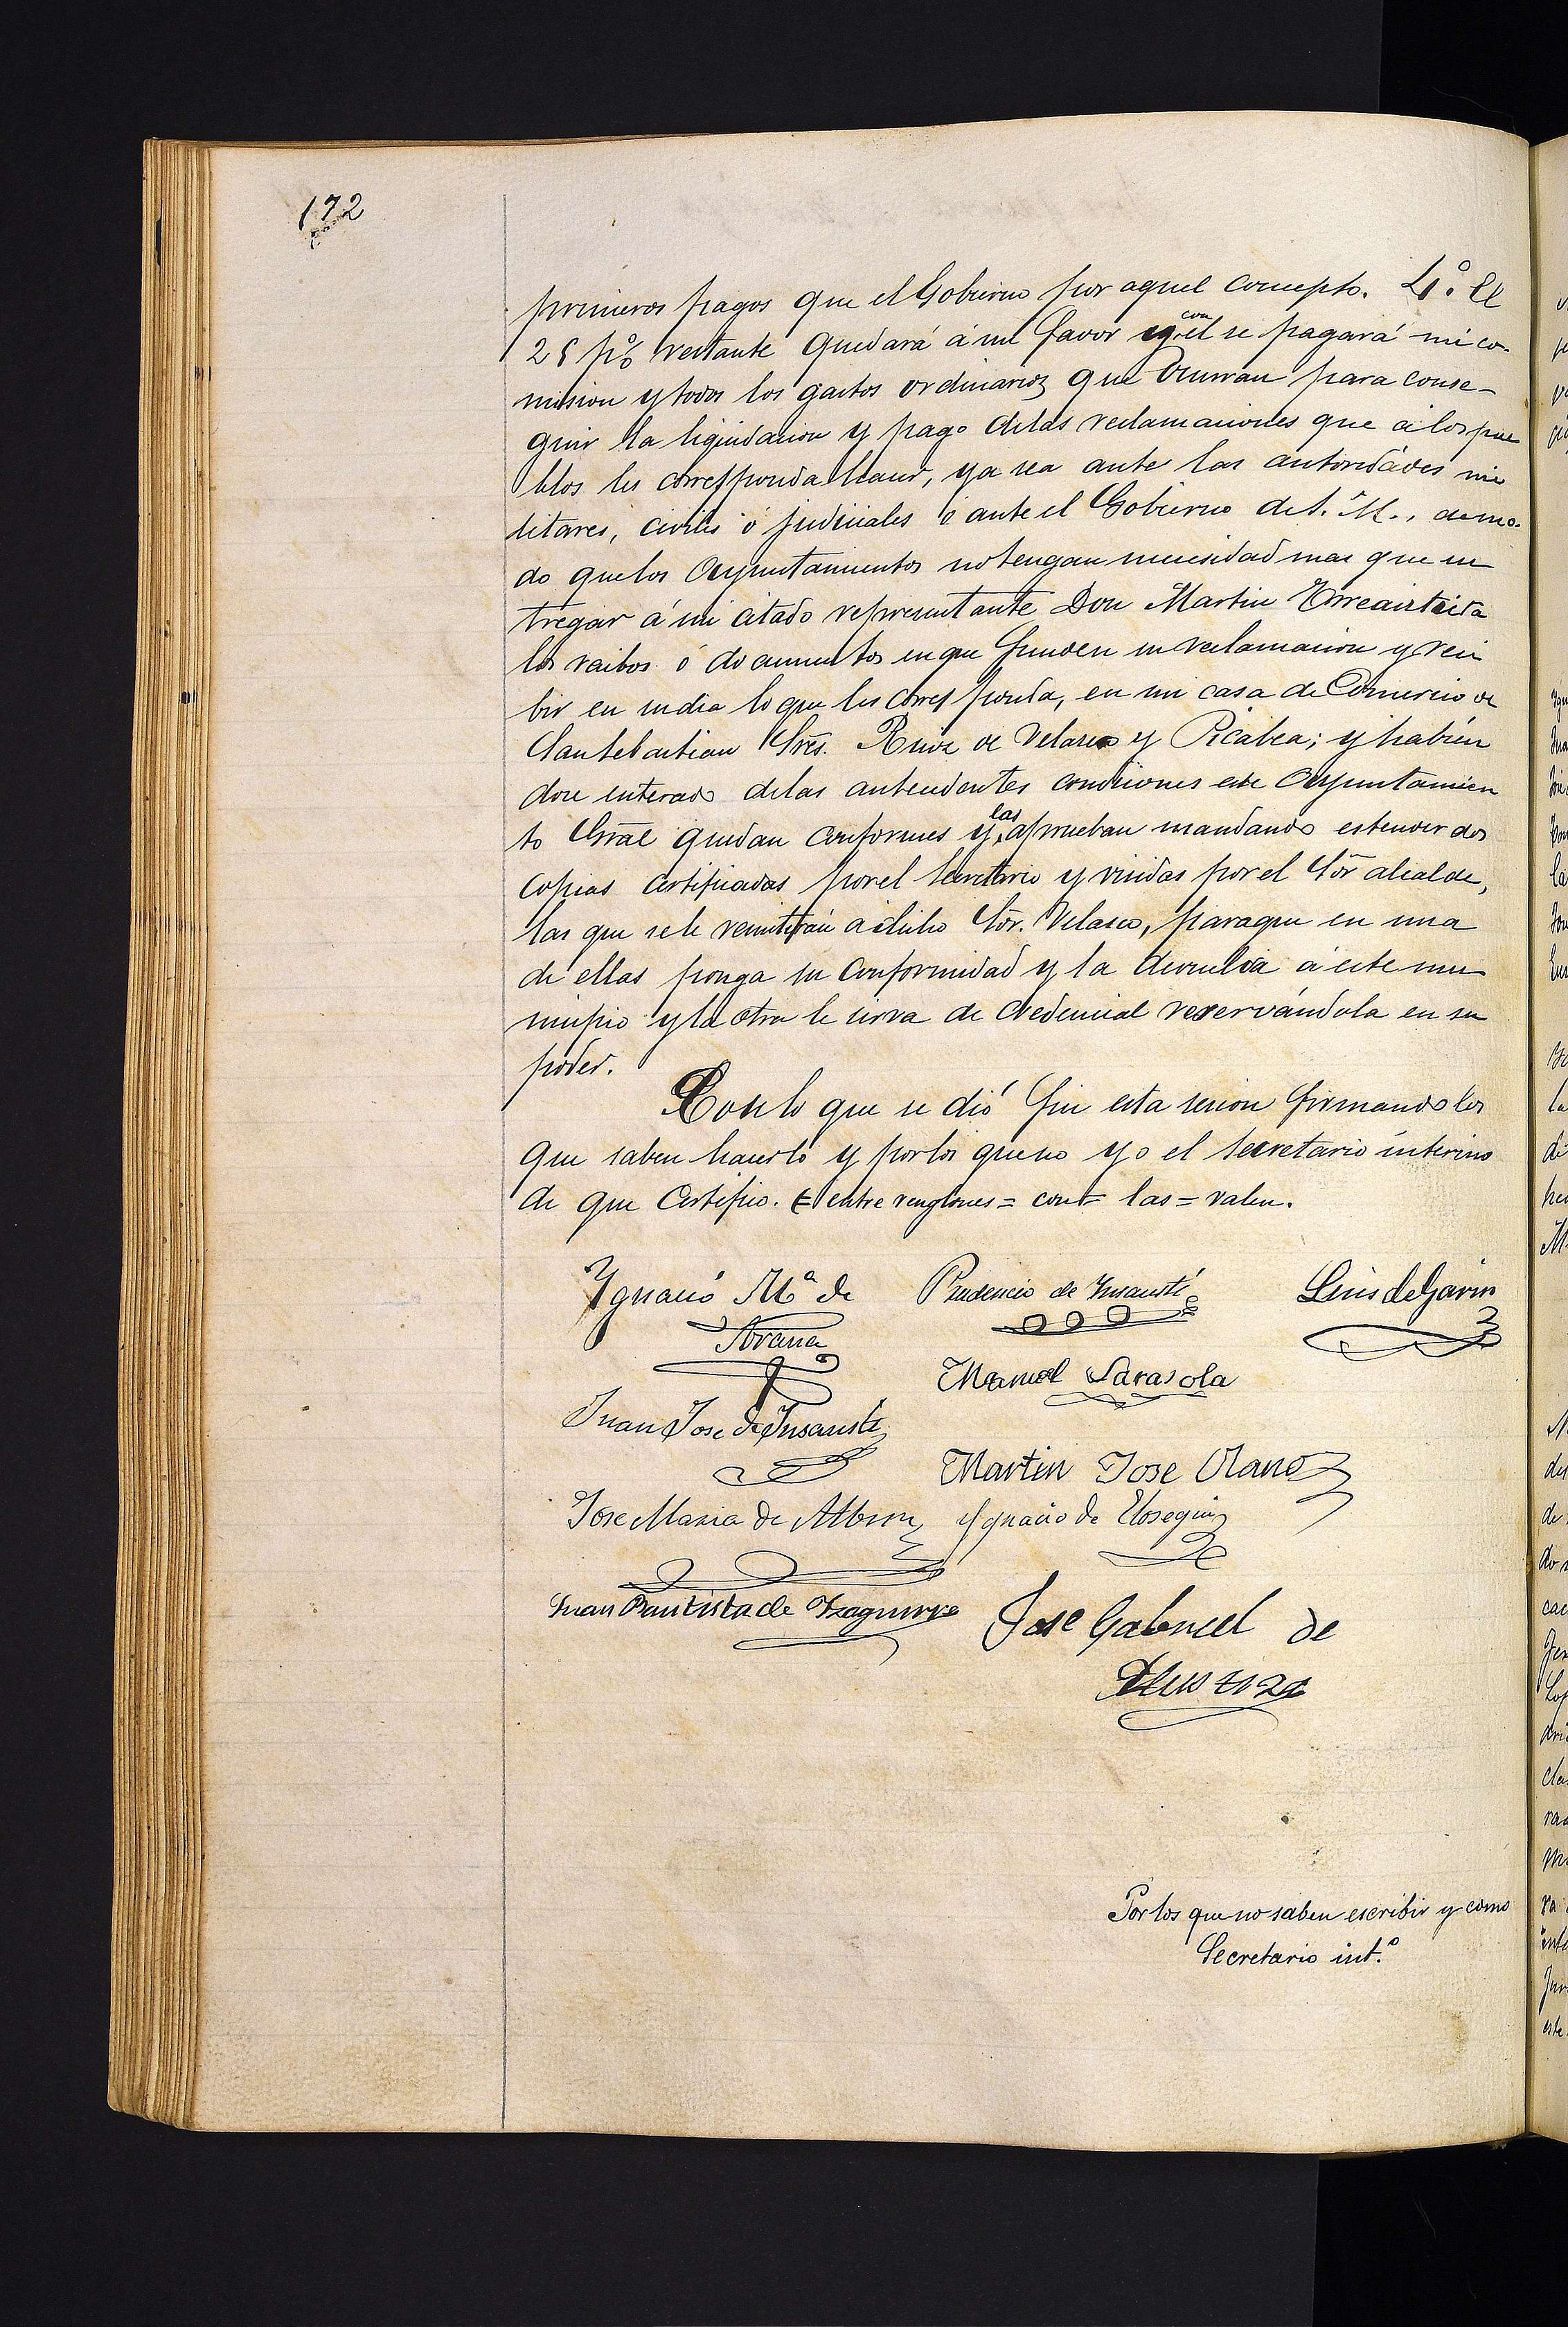 172
primeros pagos que el Gobierno por aquel concepto. 4.º El
25 p% restante quedará á mi favor y con él se pagará mi co-
mision y todos los gastos ordinarios que ocurran para conse-
guir la liquidacion y pago delas reclamaciones que á los pue
blos les corresponda hacer, ya sea ante las autoridades mi
litares, civiles ó judiciales ó ante el Gobierno de S. M., demo-
do quelos Ayuntamientos no tengan necesidad mas que en
tregar á mi citado representante Don Martin
los recibos ó documentos en que funden su reclamacion y reci
bir en su dia lo que les corresponda, en mi casa de Comercio de
San Sebastian Sres. Ruiz de Velasco y Picabea; y habién
dose enterado delas antecedentes condiciones este Ayuntamien
to Gral quedan conformes y las aprueban mandando estender dos
copias certificadas por el Secretario y visidas por el Sor alcalde,
las que se le remitirán á dicho Sor. Velasco, paraque en una
de ellas ponga su conformidad y la devuelva á este mu
nicipio y la otra le sirva de credencial reservándola en su
poder.
Con lo que se dió fin esta sesion firmando los
que saben hacerlo y por los que no yo el Secretario interino
de que certifico. = entre renglones = con = las = valen.
Ygnacio Mª de Prudencio de Insausti Luis de Garin
Arana
Manuel Sarasola
Juan Jose de Insausti
Martin Jose Olano
Jose Maria de Albisu Ygnacio de Elosegui
Juan Bautista de Izaguirre Jose Gabriel de
Por los que no saben escribir y como
Secretario int.º